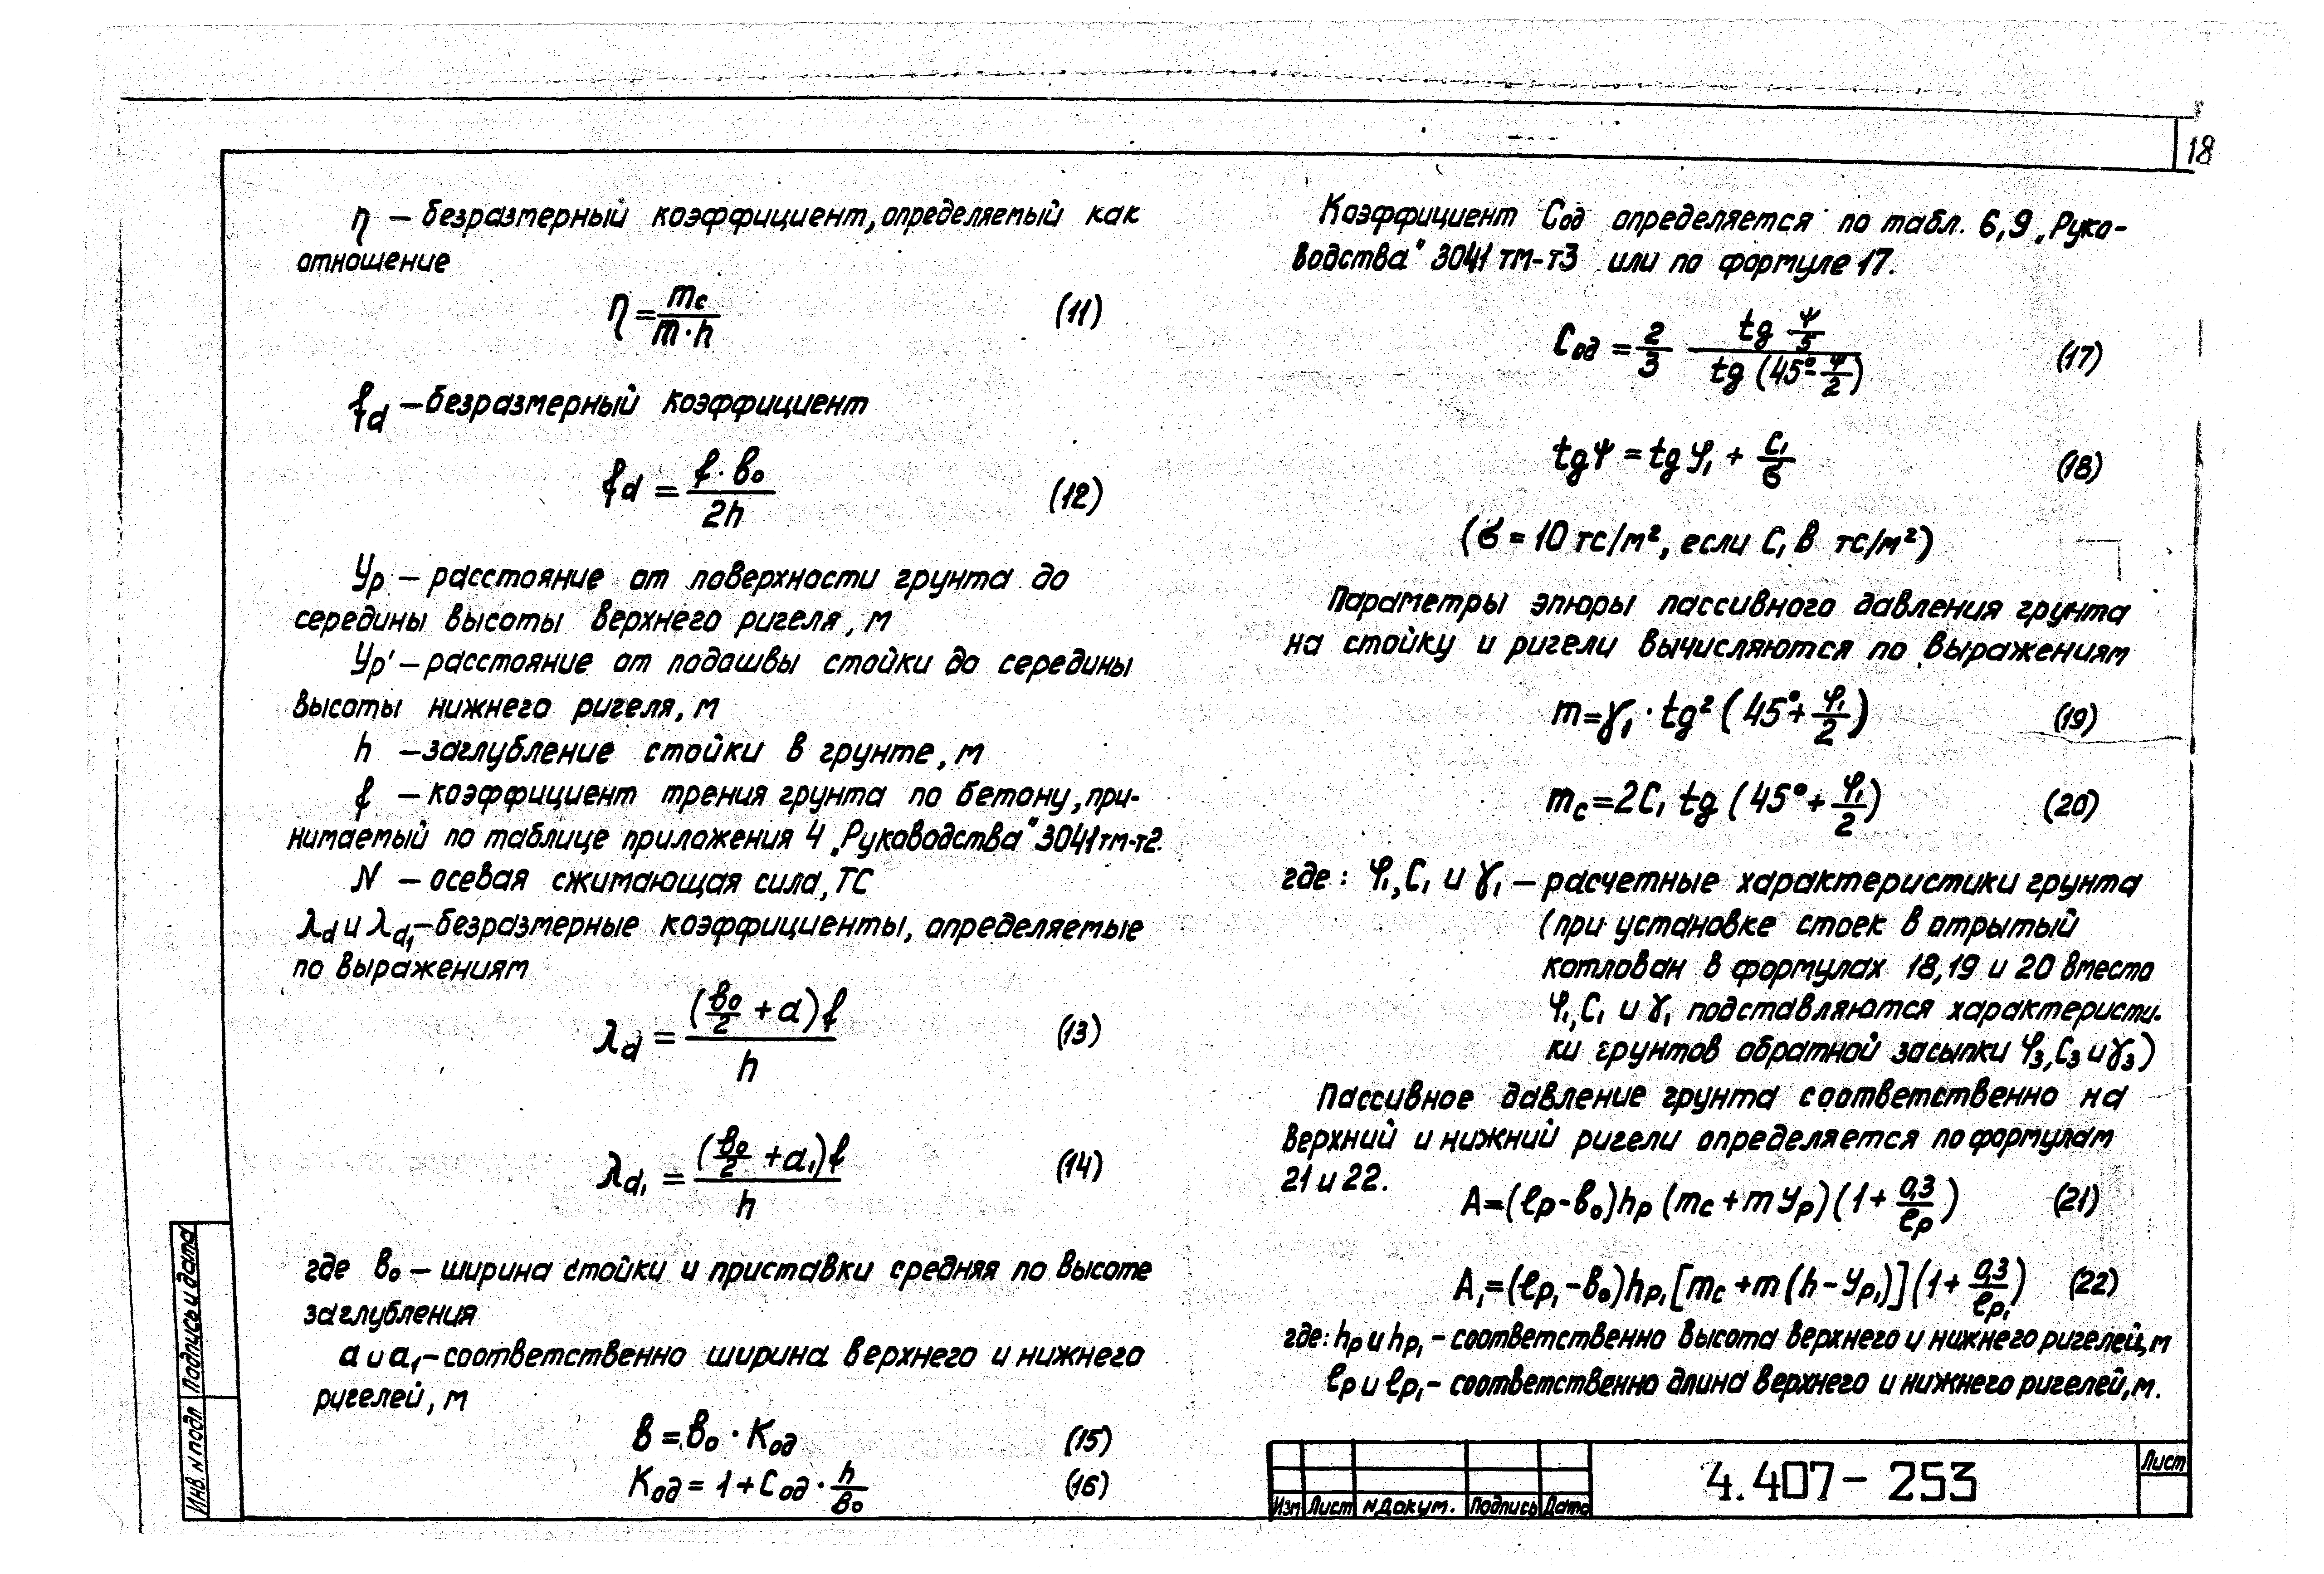 18
η – безразмерный коэффициент, определяемый как
отношение
η = mс / m·h (11)
fd – безразмерный коэффициент
fd = f·в₀ / 2h (12)
Ур – расстояние от поверхности грунта до
середины высоты верхнего ригеля, м
Ур' – расстояние от подошвы стойки до середины
высоты нижнего ригеля, м
h – заглубление стойки в грунте, м
f – коэффициент трения грунта по бетону, при-
нимаемый по таблице приложения 4 „Руководства" 3041тм-т2.
N – осевая сжимающая сила, ТС
λd и λd₁ – безразмерные коэффициенты, определяемые
по выражениям
λd = (в₀/2 + d)f / h (13)
λd₁ = (в₀/2 + d₁)f / h (14)
где в₀ – ширина стойки и приставки средняя по высоте
заглубления
d и d₁ – соответственно ширина верхнего и нижнего
ригелей, м
в = в₀ · Kод (15)
Kод = 1 + Cод · h/в₀ (16)
Коэффициент Cод определяется по табл. 6,9 „Руко-
водства" 3041 тм-т3 или по формуле 17.
Cод = 2/3 tg ψ/5 / tg (45° - ψ/2) (17)
tgψ = tgφ₁ + C₁/σ (18)
(σ = 10 тс/м², если C₁ в тс/м²)
Параметры эпюры пассивного давления грунта
на стойку и ригели вычисляются по выражениям
m = γ₁ · tg² (45° + φ₁/2) (19)
mс = 2C₁ tg (45° + φ₁/2) (20)
где: φ₁, C₁ и γ₁ – расчетные характеристики грунта
(при установке стоек в отрытый
котлован в формулах 18,19 и 20 вместо
φ₁, C₁ и γ₁ подставляются характеристи-
ки грунтов обратной засыпки φ₃, C₃ и γ₃)
Пассивное давление грунта соответственно на
верхний и нижний ригели определяется по формулам
21 и 22.
A = (ℓр - в₀)hр (mс + m Ур)(1 + 0,3/ℓр) (21)
A₁ = (ℓр₁ - в₀)hр₁ [mс + m (h - Ур₁)](1 + 0,3/ℓр₁) (22)
где: hр и hр₁ – соответственно высота верхнего и нижнего ригелей, м
ℓр и ℓр₁ – соответственно длина верхнего и нижнего ригелей, м.
Инв. N подл Подпись и дата
Изм Лист N докум. Подпись Дата
4.407-253
Лист